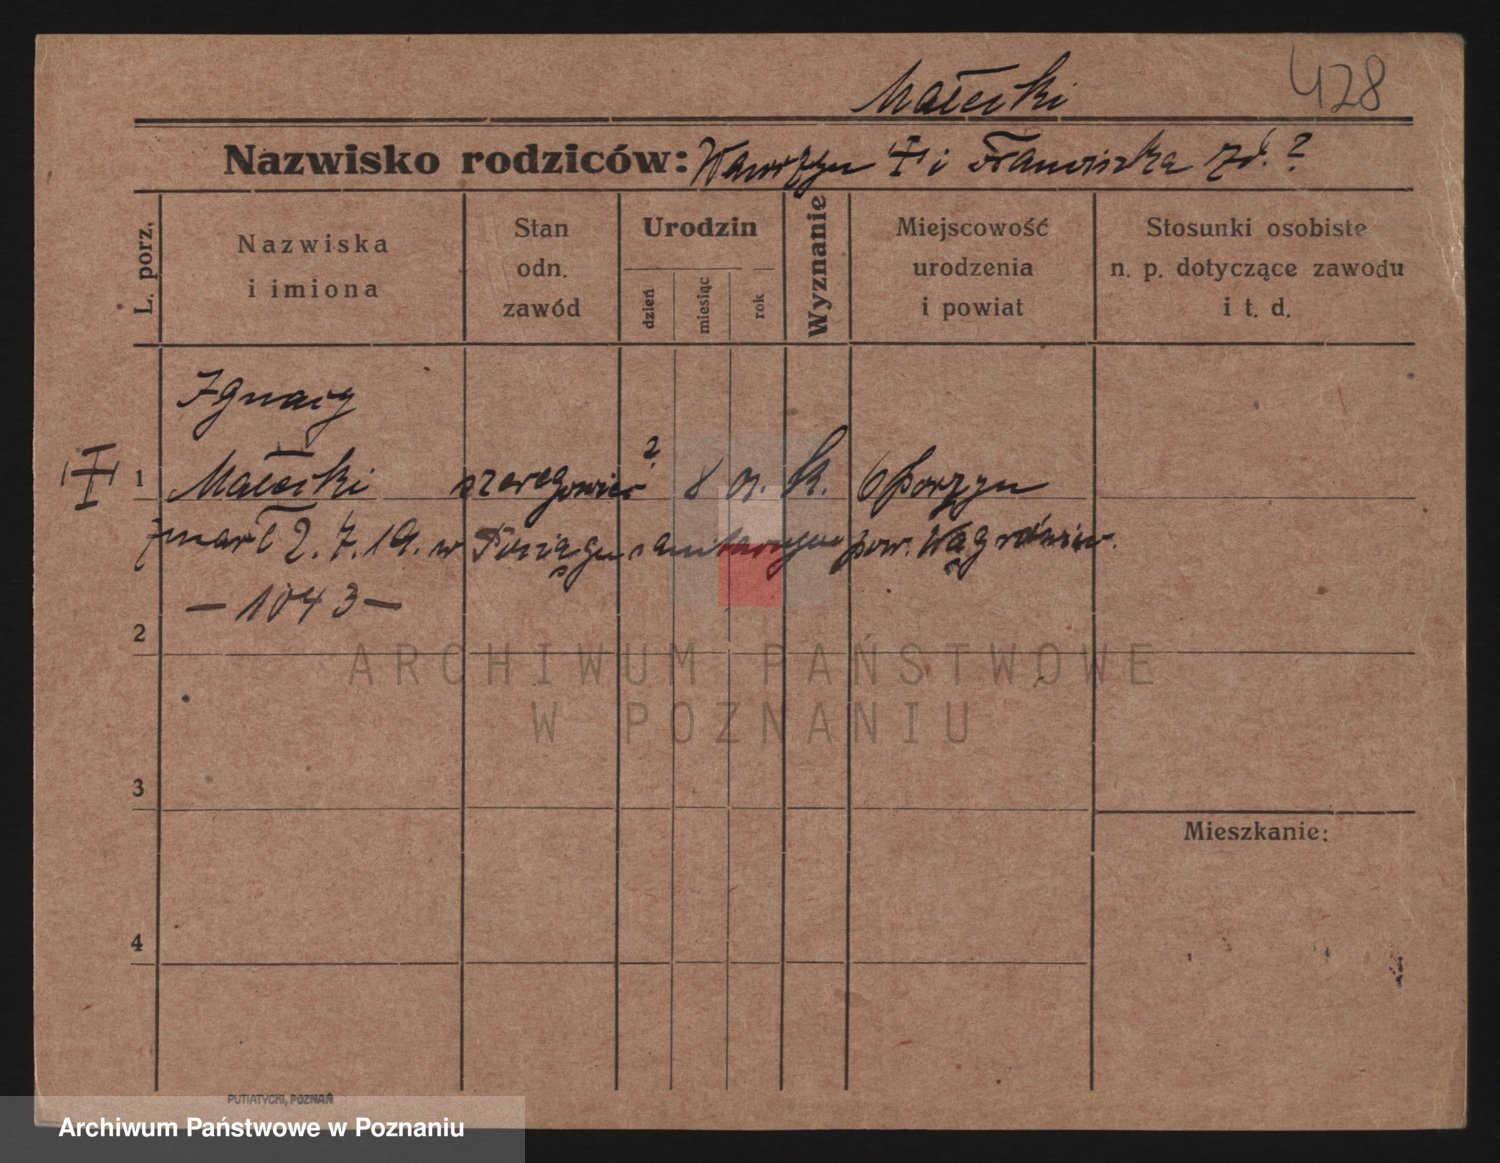 428
Małecki
Nazwisko rodziców: Wawrzyn i Franciszka zd. ?
L. porz.
Nazwiska
i imiona
Stan
odn.
zawód
Urodzin
dzień
miesiąc
rok
Wyznanie
Miejscowość
urodzenia
i powiat
Stosunki osobiste
n. p. dotyczące zawodu
i t. d.
Ignacy
1 Małecki szeregowiec ? 8 k. Oporzyn
zmarł 2.7.19. w Pociągu sanitarnym pow. Wągrówiec.
— 1043 —
2
3
4
Mieszkanie:
PUTIATYCKI, POZNAŃ
ARCHIWUM PAŃSTWOWE
W POZNANIU
Archiwum Państwowe w Poznaniu